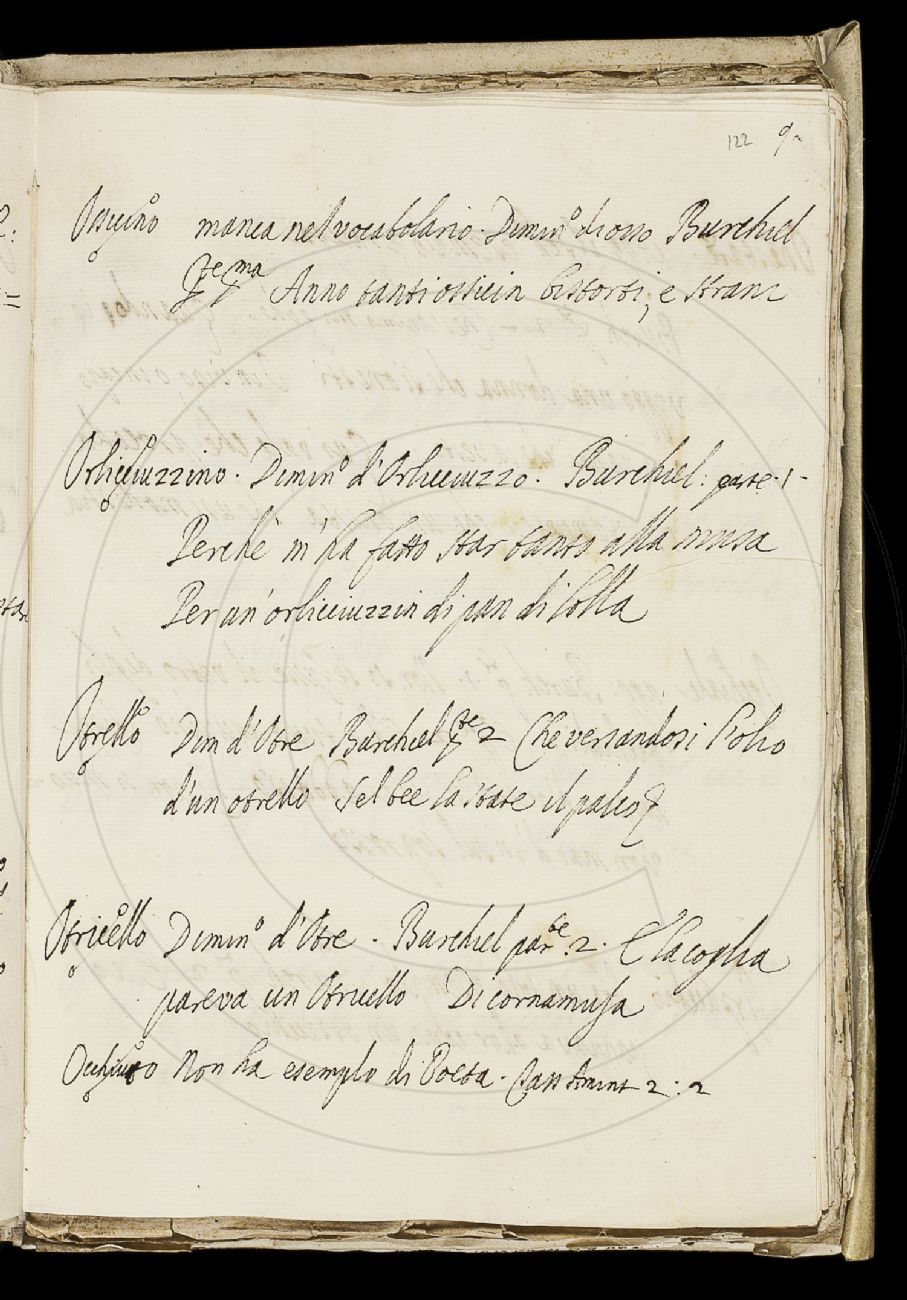 122 9
Ossicino manca nel vocabolario. Dimin.o di osso Burchiel
p.te p.ma Anno tanti ossicin bistorti, e stran
Orlicciuzzino. Dimin.o d'Orlicciuzzo. Burchiel: parte. 1
Perchè m'ha fatto star tanto alla musa
Per un'orlicciuzzin di pan di Colla
Otrello Dim d'Otre Burchiel p.te 2 Che versandosi l'olio
d'un otrello Sel bee la state il paleo
Otricello Dimin.o d'Otre. Burchiel par.te 2. E la coglia
pareva un Otricello Di cornamusa
Non ha esemplo di Poeta. Tass Amint 2: 2